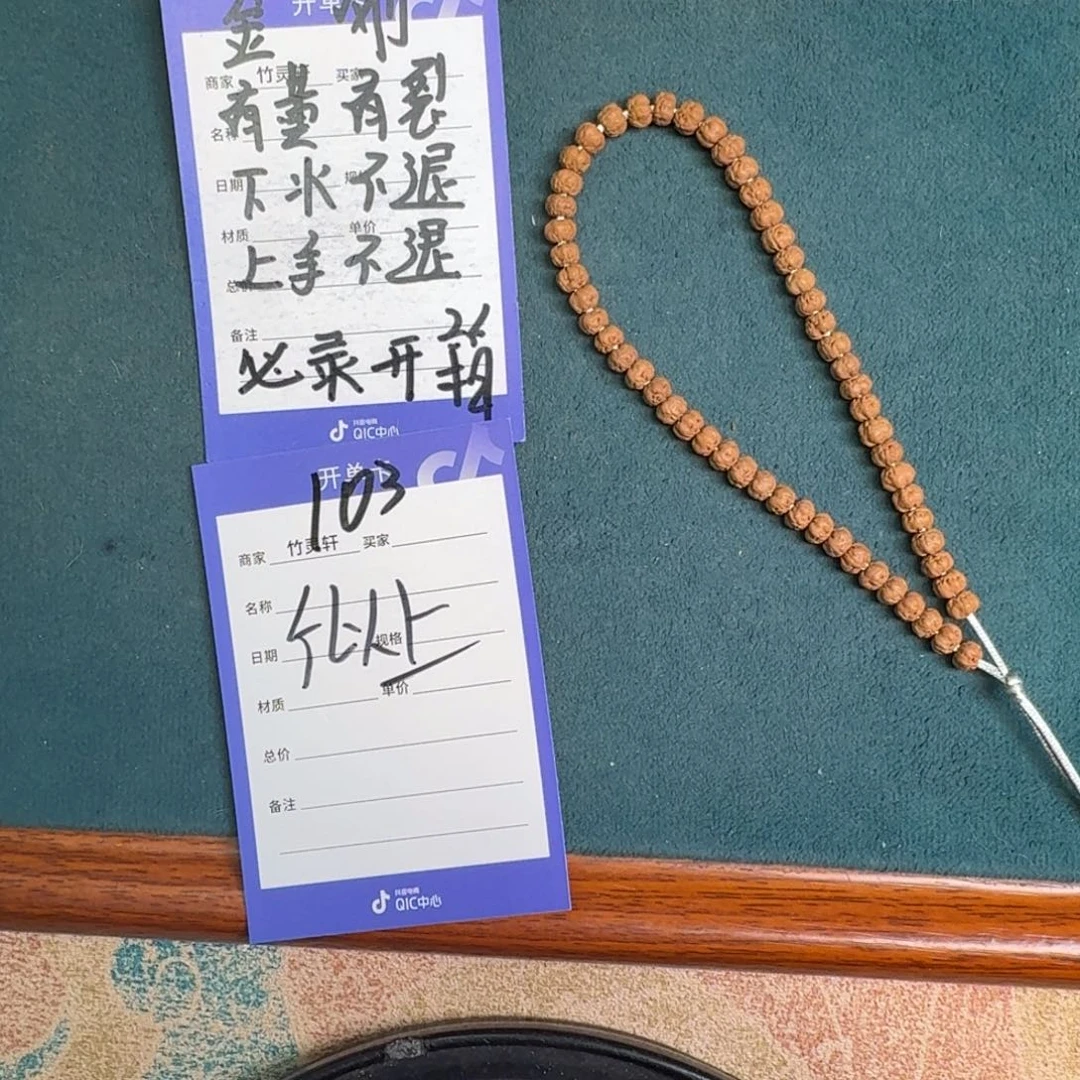 开单
金刚
商家 竹灵 买家
有量有裂
名称
下水不退
日期
材质 单价
上手不退
总
备注
必录开箱
抖音电商
QIC中心
开单卡
103
商家 竹灵轩 买家
名称
日期 规格
材质 单价
总价
备注
抖音电商
QIC中心